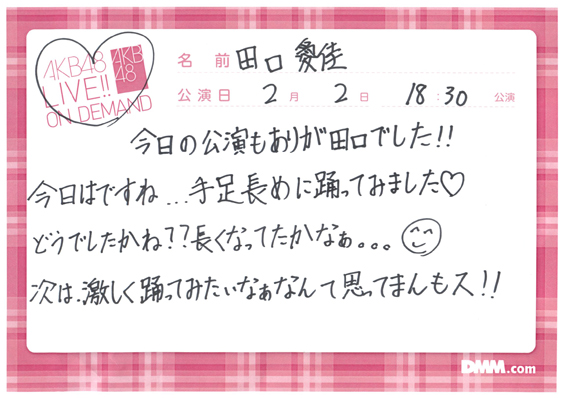 AKB48
LIVE!!
ON DEMAND
AKB
48
名前 田口 愛佳
公演日 2月 2日 18:30 公演
今日の公演もありが田口でした!!
今日はですね...手足長めに踊ってみました♡
どうでしたかね??長くなってたかなぁ。。。
次は、激しく踊ってみたいなぁなんて思ってまんもス!!
DMM.com